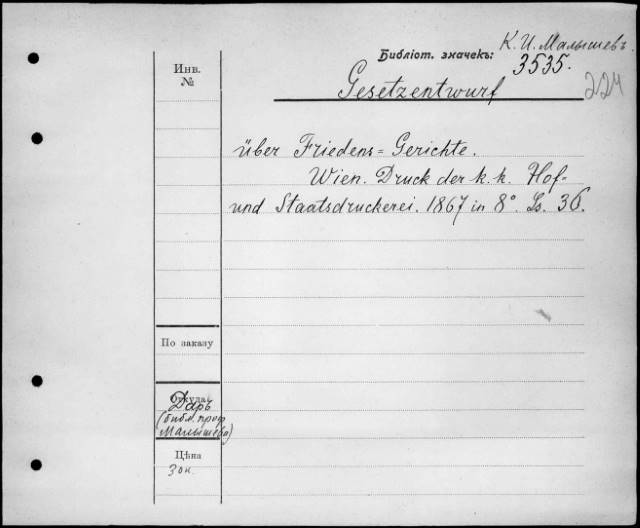 К. И. Малышевъ.
Библіот. значекъ:
3535.
Инв.
№
Gesetzentwurf
224
über Friedens=Gerichte.
Wien. Druck der k. k. Hof-
und Staatsdruckerei. 1867 in 8°. Ss. 36.
По заказу
Откуда
Даръ
(библ. проф
Малышева)
Цѣна
30к.